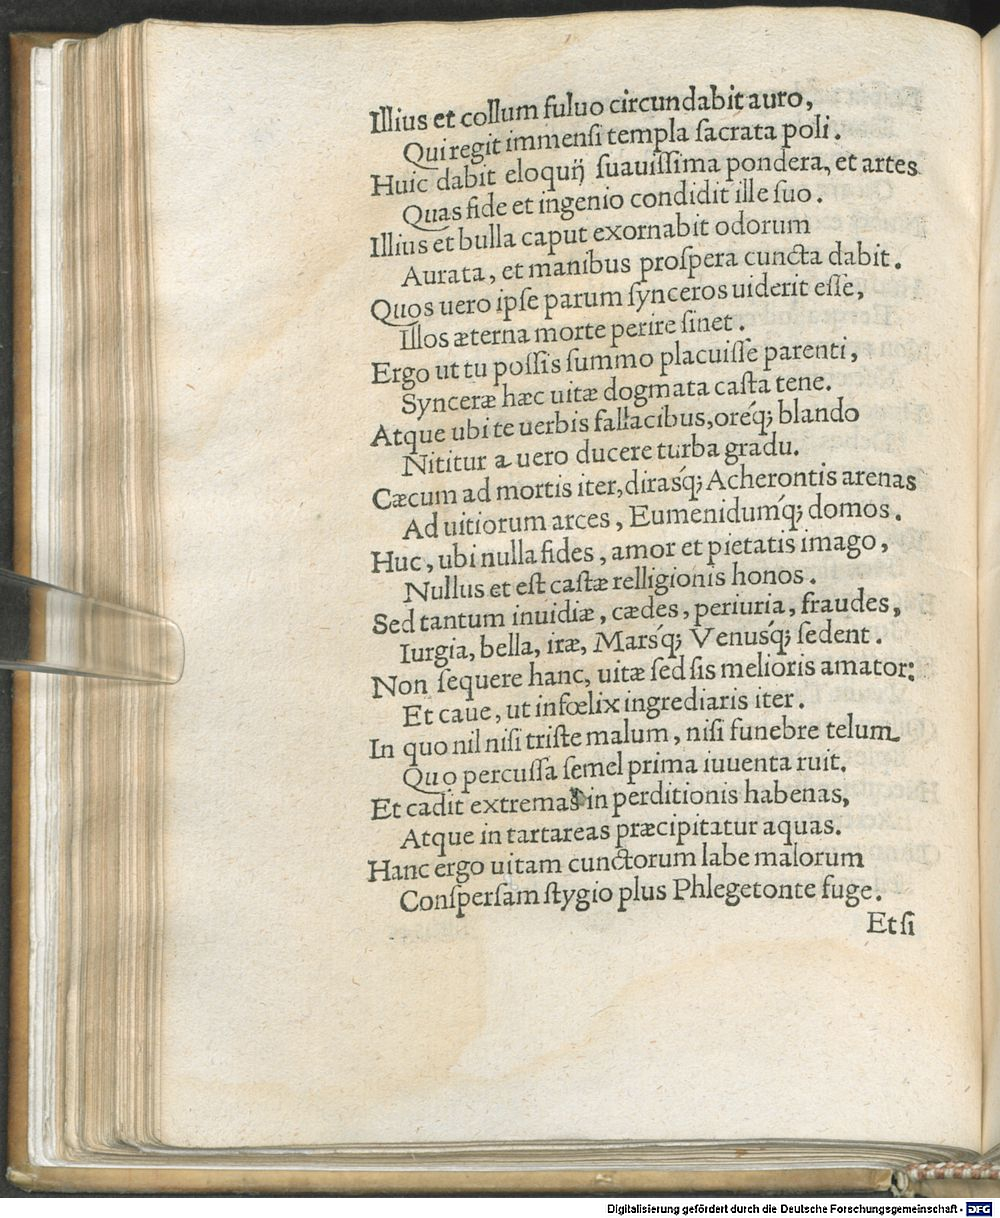 Illius et collum fuluo circundabit auro,
Qui regit immensi templa sacrata poli.
Huic dabit eloquij suauissima pondera, et artes
Quas fide et ingenio condidit ille suo.
Illius et bulla caput exornabit odorum
Aurata, et manibus prospera cuncta dabit.
Quos uero ipse parum synceros uiderit esse,
Illos æterna morte perire sinet.
Ergo ut tu possis summo placuisse parenti,
Synceræ hæc uitæ dogmata casta tene.
Atque ubi te uerbis fallacibus, oréq; blando
Nititur a uero ducere turba gradu.
Cæcum ad mortis iter, dirasq́; Acherontis arenas
Ad uitiorum arces, Eumenidumq́; domos.
Huc, ubi nulla fides, amor et pietatis imago,
Nullus et est castæ relligionis honos.
Sed tantum inuidiæ, cædes, periuria, fraudes,
Iurgia, bella, iræ, Marsq́; Venusq́; sedent.
Non sequere hanc, uitæ sed sis melioris amator:
Et caue, ut infœlix ingrediaris iter.
In quo nil nisi triste malum, nisi funebre telum
Quo percussa semel prima iuuenta ruit.
Et cadit extremas in perditionis habenas,
Atque in tartareas præcipitatur aquas.
Hanc ergo uitam cunctorum labe malorum
Conspersam stygio plus Phlegetonte fuge.
Et si
Digitalisierung gefördert durch die Deutsche Forschungsgemeinschaft - DFG